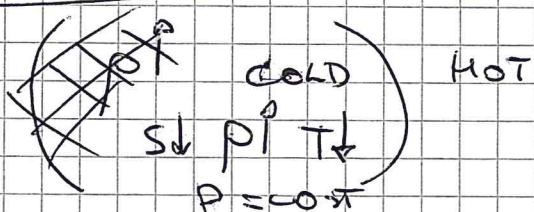 COLD HOT
S↓ ρ↑ T↓
P = CO↑T